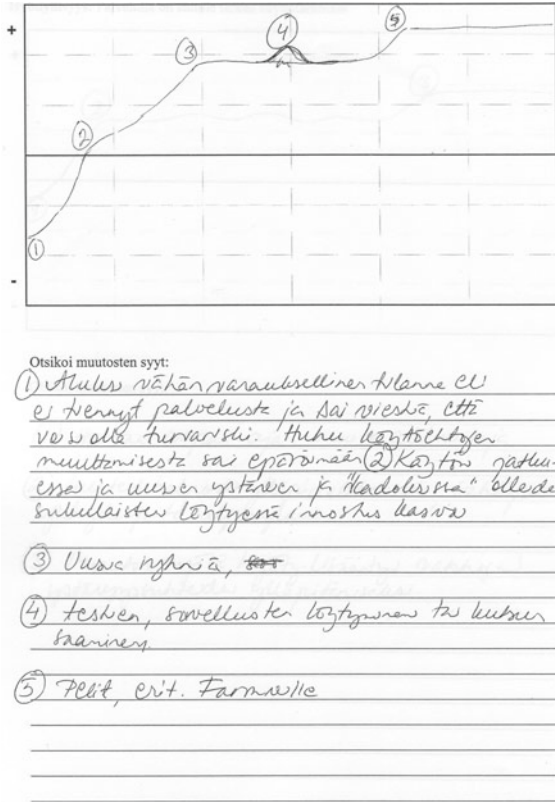 +
4
5
3
2
1
-
Otsikoi muutosten syyt:
① Aluksi vähän varauksellinen tilanne eli
ei tiennyt palvelusta ja sai viestiä, että
voisi olla turvariski. Huhu käyttöehtojen
muuttamisesta sai epäröimään ② Käytön jatku-
essa ja uusien ystävien ja "kadoksissa" olleiden
sukulaisten löytyessä innostus kasvoi
③ Uusia ryhmiä,
④ testien, sovellusten löytyminen tai kutsun
saaminen.
⑤ Pelit, erit. Farmville